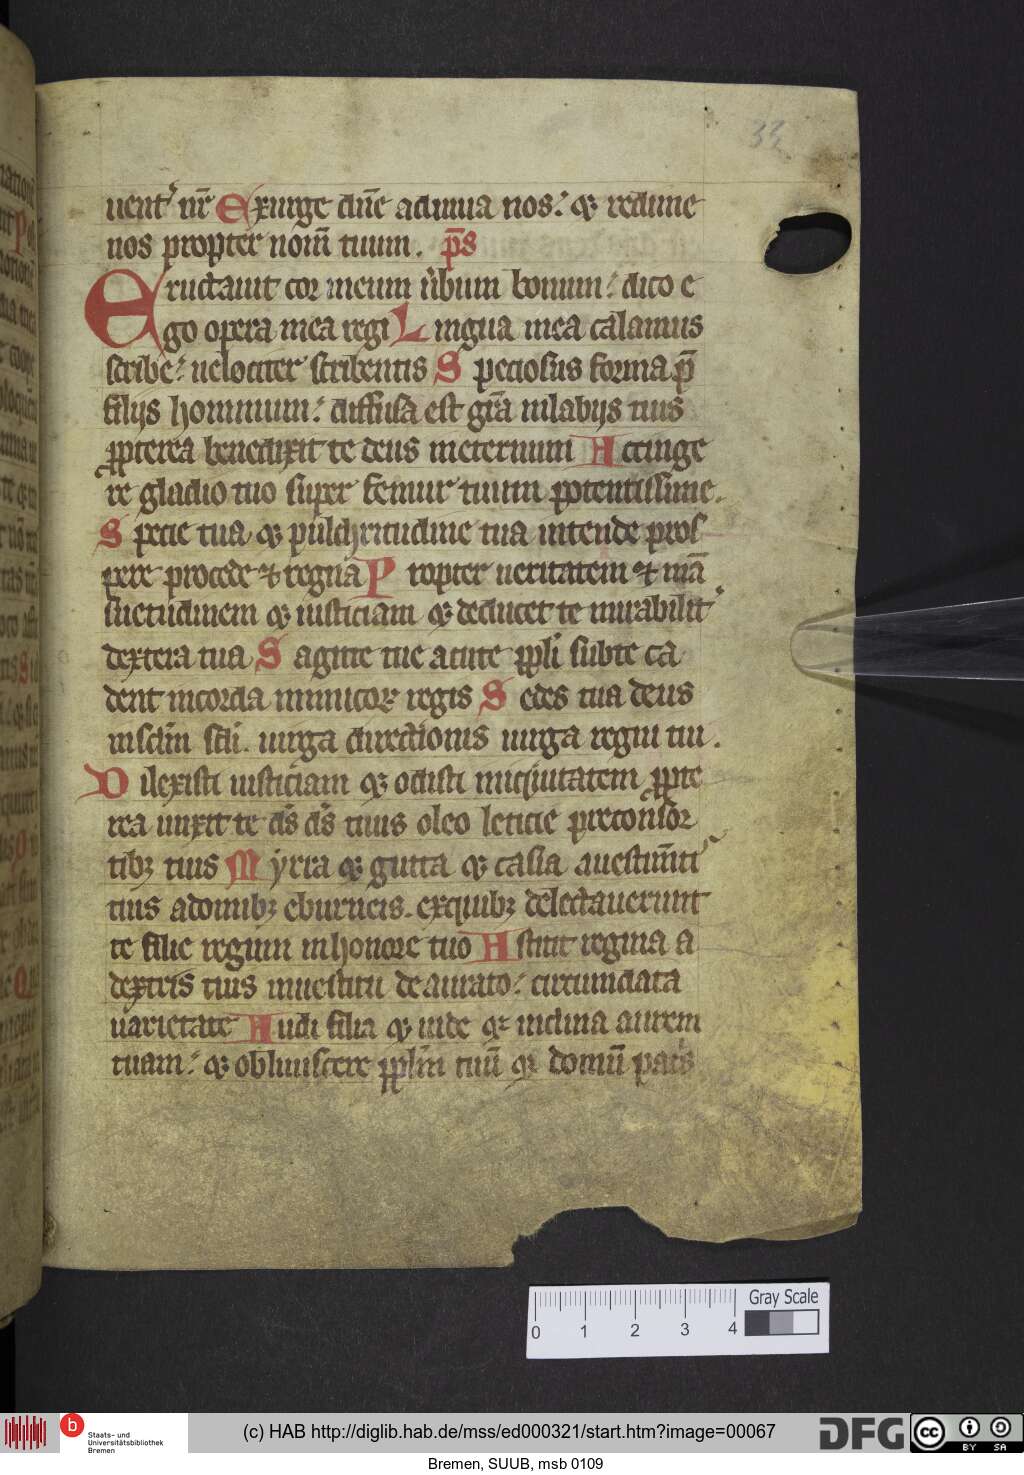 33
uent᷒ nr̄ Exurge dn̄e adiuua nos : ⁊ redime
nos propter nom̄ tuum . p̄s
Eructauit cor meum u̓bum bonum : dico e
go opera mea regi Lingua mea calamus
scribe : uelociter scribentis Speciosus forma p̄
filijs hominum : diffusa est gr̄a inlabijs tuis
ꝓpterea benedixit te deus ineternum Accinge
re gladio tuo super femur tuum potentissime .
Specie tua ⁊ pulchritudine tua intende pros
pere procede ⁊ regna Propter ueritatem ⁊ mā
suetudinem ⁊ iusticiam ⁊ deducet te mirabilit᷒
dextera tua Sagitte tue acute ppl̓i subte ca
dent incorda inimicoꝝ regis Sedes tua deus
insclm̄ scl̓i . uirga directionis uirga regni tui .
Dilexisti iusticiam ⁊ odisti iniquitatem ꝓpte
rea unxit te ds̄ ds̄ tuus oleo leticie preconsor
tibꝫ tuis Myrra ⁊ gutta ⁊ casia auestim̄ti᷒
tuis adomibꝫ eburneis . exquibꝫ delectauerunt
te filie regum inhonore tuo Astitit regina a
dextris tuis inuestitu deaurato : circumdata
uarietate Audi filia ⁊ uide ⁊ inclina aurem
tuam : ⁊ obliuiscere ppl̄m tuū ⁊ domū pat̓s
Gray Scale
0 1 2 3 4
b
Staats- und
Universitätsbibliothek
Bremen
(c) HAB http://diglib.hab.de/mss/ed000321/start.htm?image=00067
DFG
cc BY SA
Bremen, SUUB, msb 0109